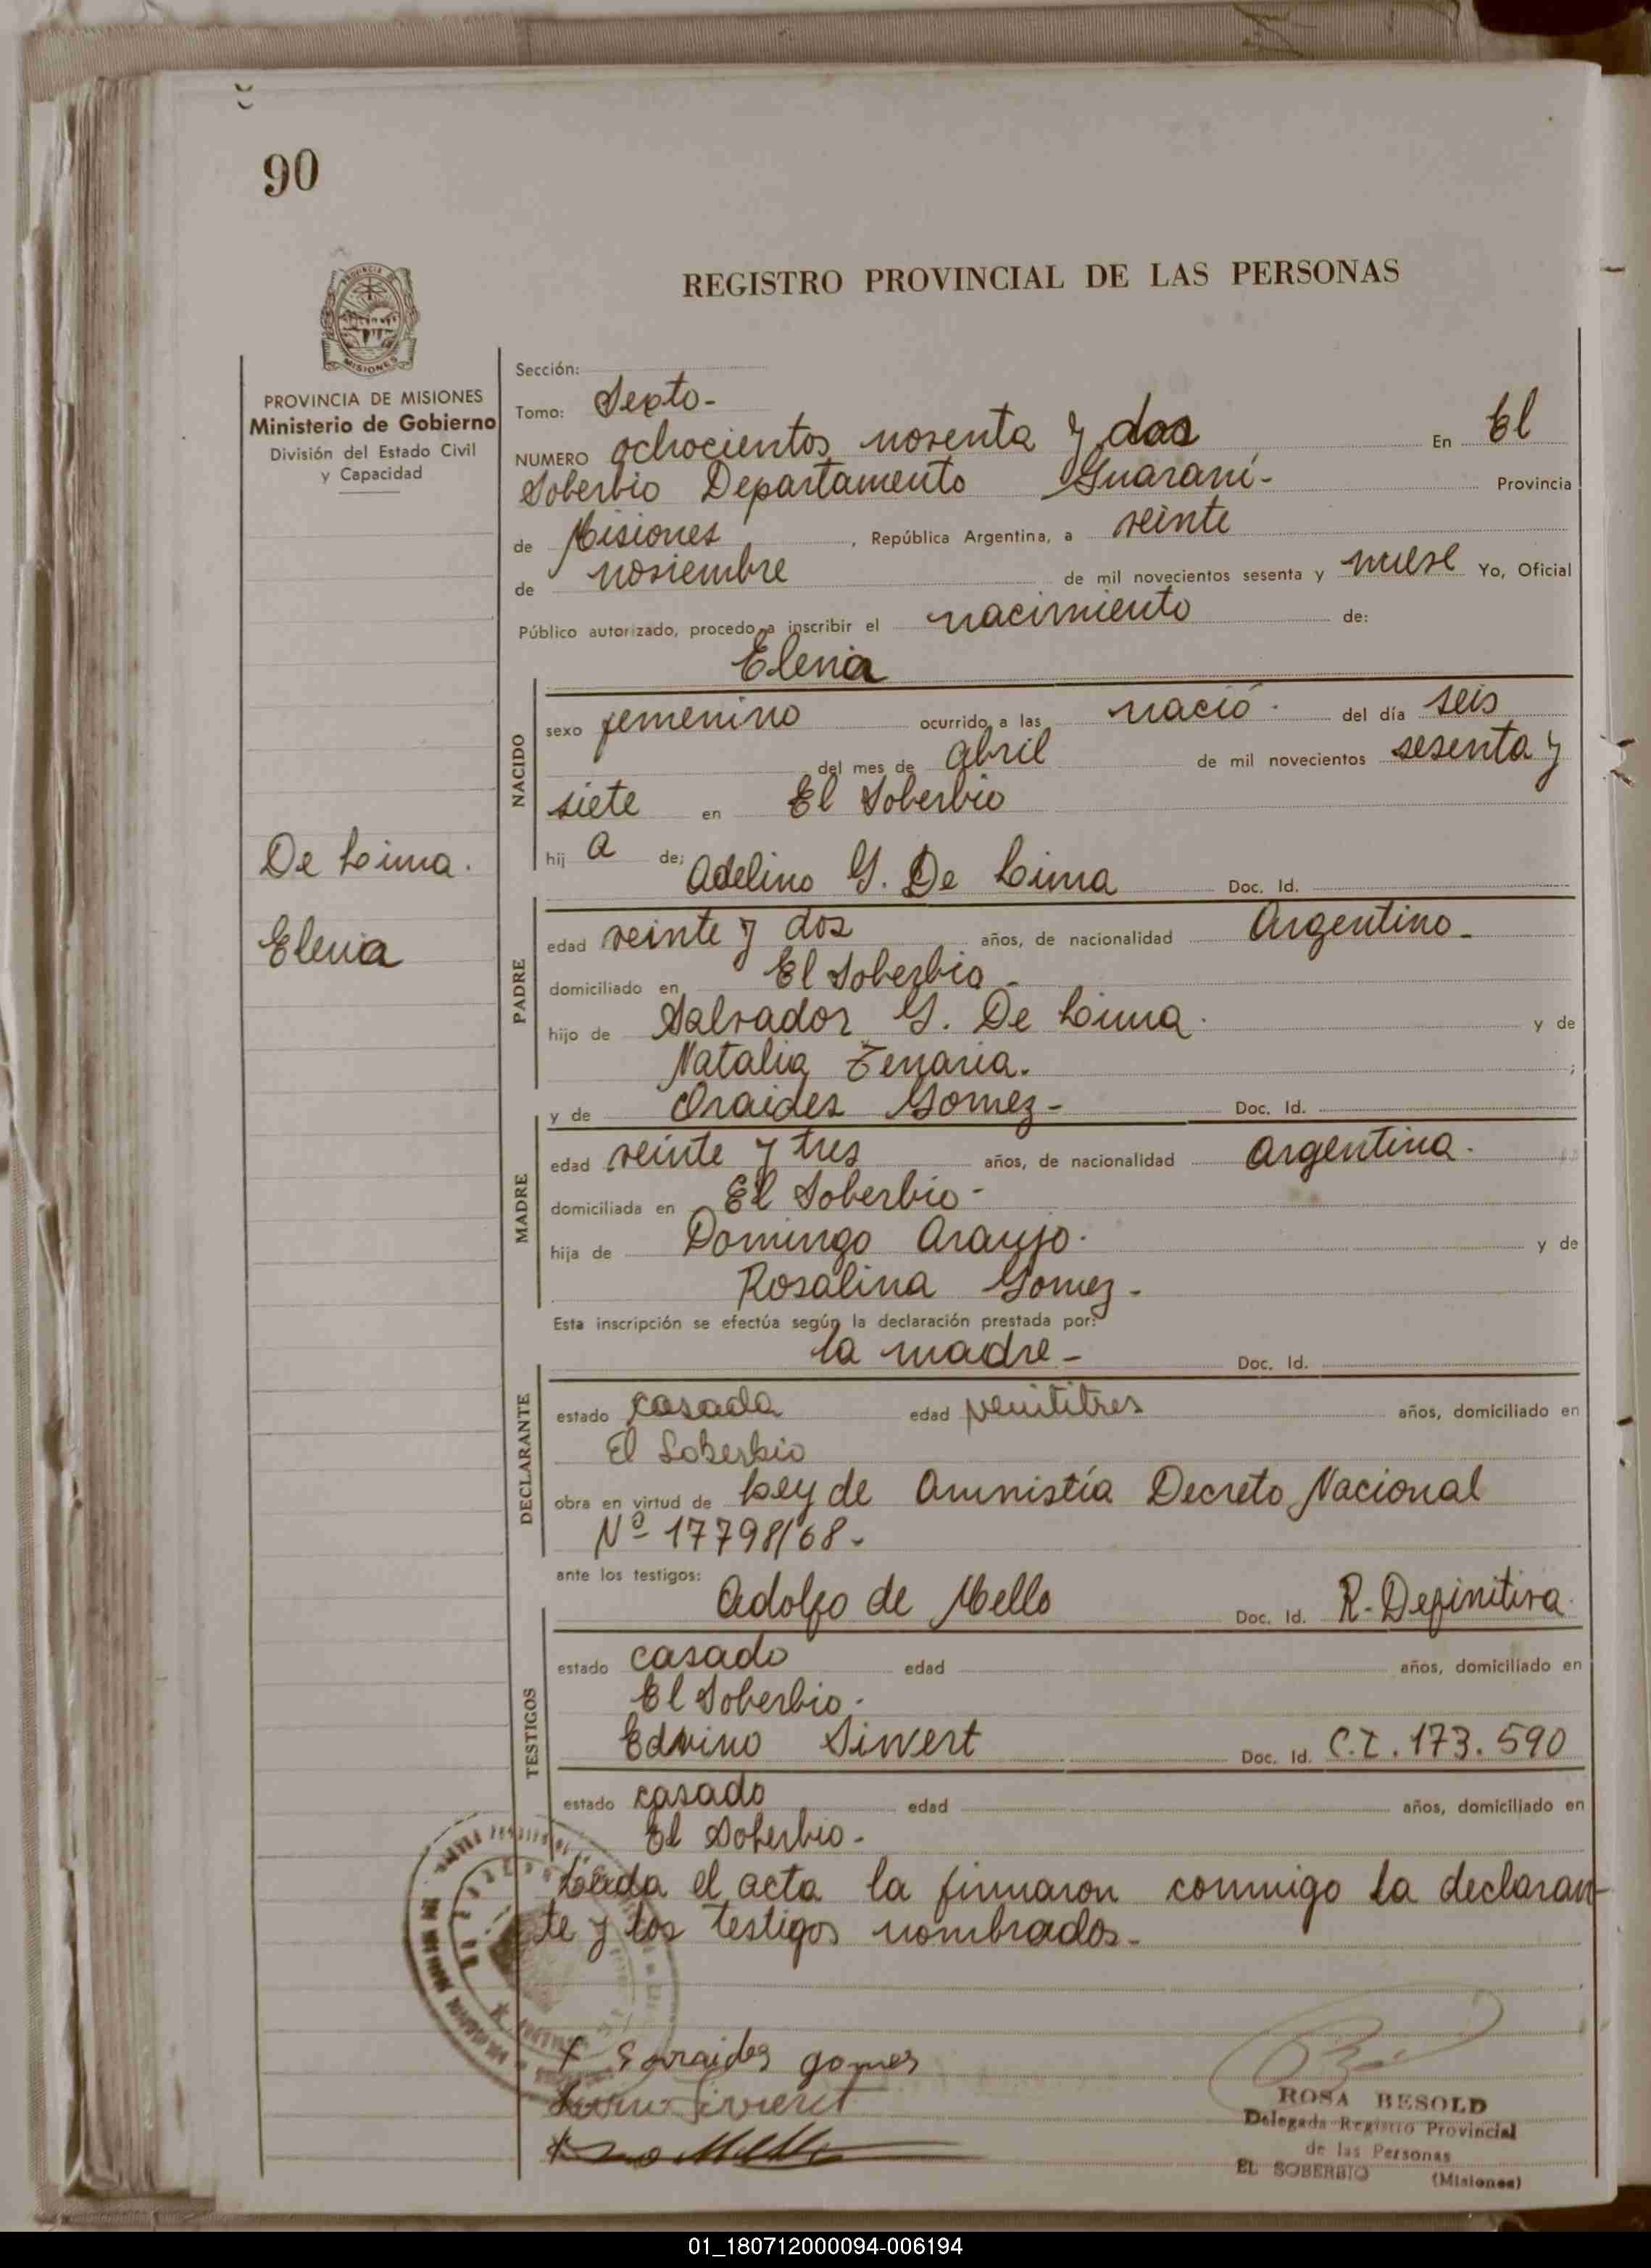 90
REGISTRO PROVINCIAL DE LAS PERSONAS
MISIONES
PROVINCIA DE MISIONES
Ministerio de Gobierno
División del Estado Civil
y Capacidad
De Lima.
Elena
Sección:
Tomo: Sexto-
NUMERO ochocientos noventa y dos En El
Soberbio Departamento Guaraní- Provincia
de Misiones, República Argentina, a veinte
de noviembre de mil novecientos sesenta y nueve Yo, Oficial
Público autorizado, procedo a inscribir el nacimiento de:
Elena
NACIDO
sexo femenino ocurrido a las nació. del día seis
del mes de abril de mil novecientos sesenta y
siete en El Soberbio
hij a de: Adelino G. De Lima Doc. Id.
PADRE
edad veinte y dos años, de nacionalidad Argentino-
domiciliado en El Soberbio-
hijo de Salvador G. De Lima. y de
Natalia ;
y de Oraides Gomez- Doc. Id.
MADRE
edad veinte y tres años, de nacionalidad argentina.
domiciliada en El Soberbio-
hija de Domingo Araujo. y de
Rosalina Gomez-
Esta inscripción se efectúa según la declaración prestada por:
la madre- Doc. Id.
DECLARANTE
estado casada edad venititres años, domiciliado en
El Soberbio
obra en virtud de Ley de Amnistía Decreto Nacional
Nº 17798/68-
ante los testigos:
Adolfo de Mello Doc. Id. R. Definitiva.
TESTIGOS
estado casado edad años, domiciliado en
El Soberbio.
Edvino Siwert Doc. Id. C.I. 173.590
estado casado edad años, domiciliado en
El Soberbio-
Leída el acta la firmaron conmigo la declaran-
te y los testigos nombrados-
gomes
ROSA BESOLD
Delegada Registro Provincial
de las Personas
EL SOBERBIO (Misiones)
01_180712000094-006194